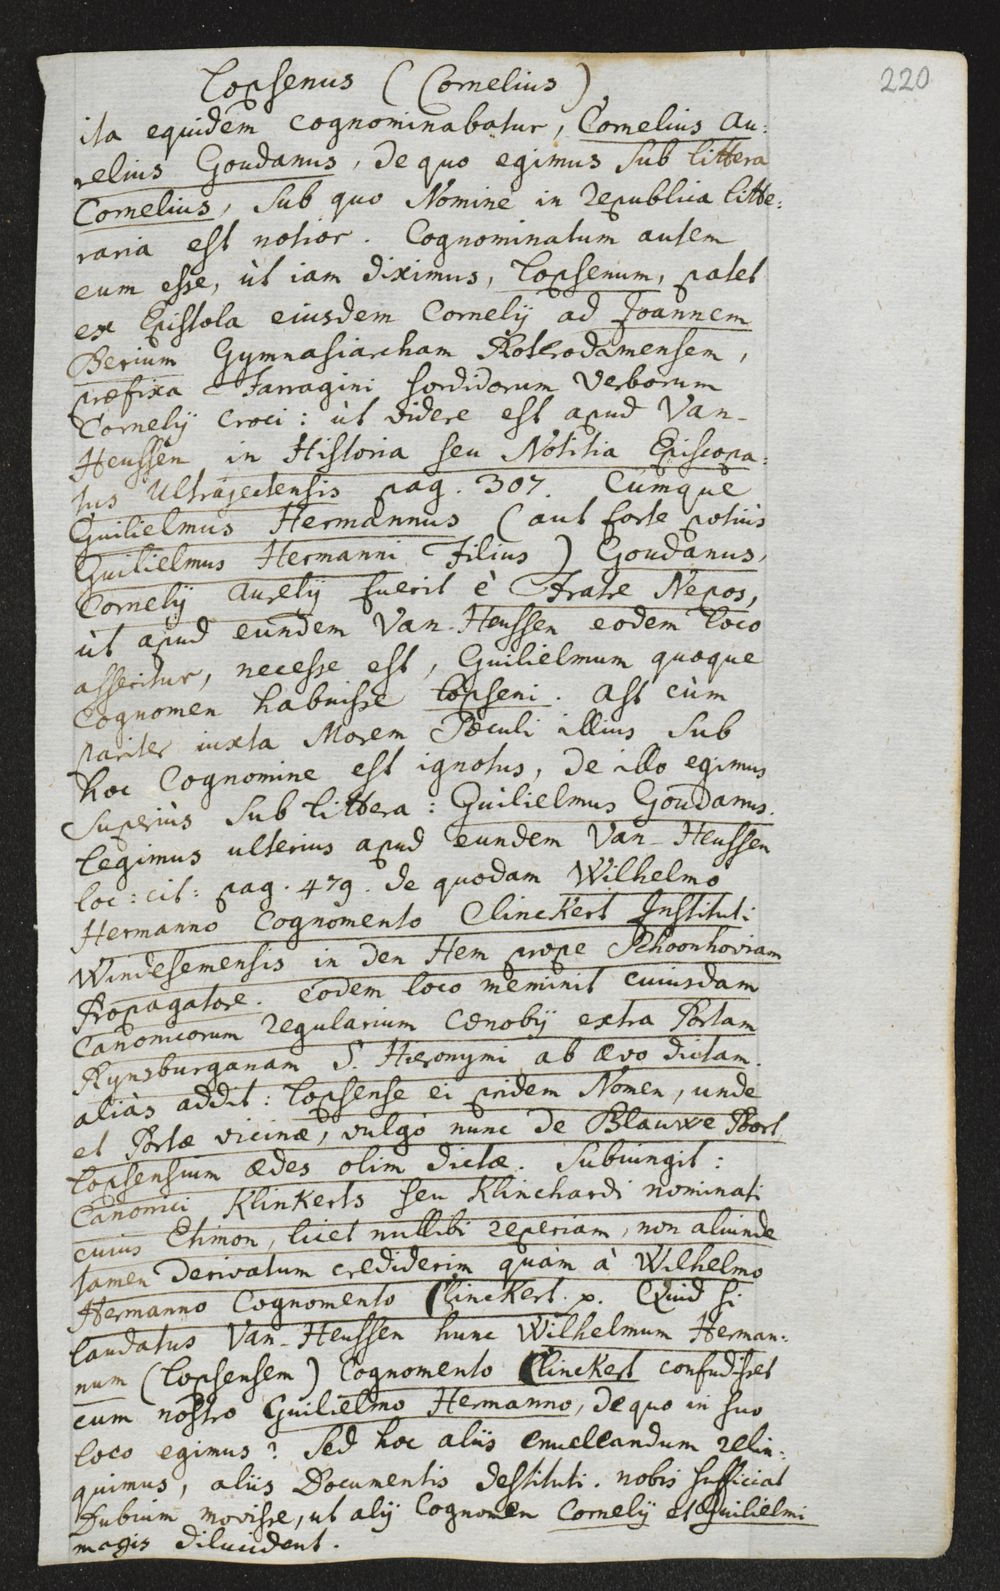 220
Lopsenus (Cornelius)
ita equidem cognominabatur, Cornelius Au:
relius Goudanus, de quo egimus sub littera
Cornelius, sub quo Nomine in republica litte:
raria est notior. Cognominatum autem
eum esse, ùt iam diximus, Lopsenum, patet
ex Epistola eiusdem Cornelij ad Joannem
Berium Gymnasiarcham Roterodamensem,
præfixa Farragini sordidorum Verborum
Cornelij Croci: ùt videre est apud Van-
Heussen in Historia seu Notitia Episcopa:
tus Ultrajectensis pag. 307. Cumque
Guilielmus Hermannus (aut forte potius
Guilielmus Hermanni Filius) Goudanus,
Cornelij Aurelij fuerit è Fratre Nepos,
ùt apud eundem Van-Heussen eodem loco
asseritur, necesse est, Guilielmum quoque
Cognomen habuisse Lopseni. Ast cùm
pariter iuxta Morem Sæculi illius sub
hoc Cognomine est ignotus, de illo egimus
superiùs sub littera: Guilielmus Goudanus.
Legimus ulterius apud eundem Van-Heussen
loc: cit: pag. 479. de quodam Wilhelmo
Hermanno Cognomento Clinckert Instituti
Windesemensis in den Hem prope Schoonhoviam
Propagatore. eodem loco meminit cuiusdam
Canonicorum regularium Cœnobij extra Portam
Rynsburganam S. Hieronymi ab ævo dictam.
aliàs addit: Lopsense ei pridem Nomen, unde
et Portæ vicinæ, vulgò nunc de Blauwe Poort
Lopsensium ædes olim dictæ. Subiungit:
Canonici Klinkerts seu Klinchardi nominati
cuius Etimon, licet nullibi reperiam, non aliunde
tamen derivatum crediderim quàm à Wilhelmo
Hermanno Cognomento Clinckert. p. Quid si
laudatus Van-Heussen hunc Wilhelmum Herman:
num (Lopsensem) Cognomento Clinckert confudisset
cum nostro Guilielmo Hermanno, de quo in suo
loco egimus? Sed hoc aliis enucleandum relin:
quimus, aliis Documentis destituti. nobis sufficiat
Dubium movisse, ut alij Cognomen Cornelij et Guilielmi
magis dilucident.